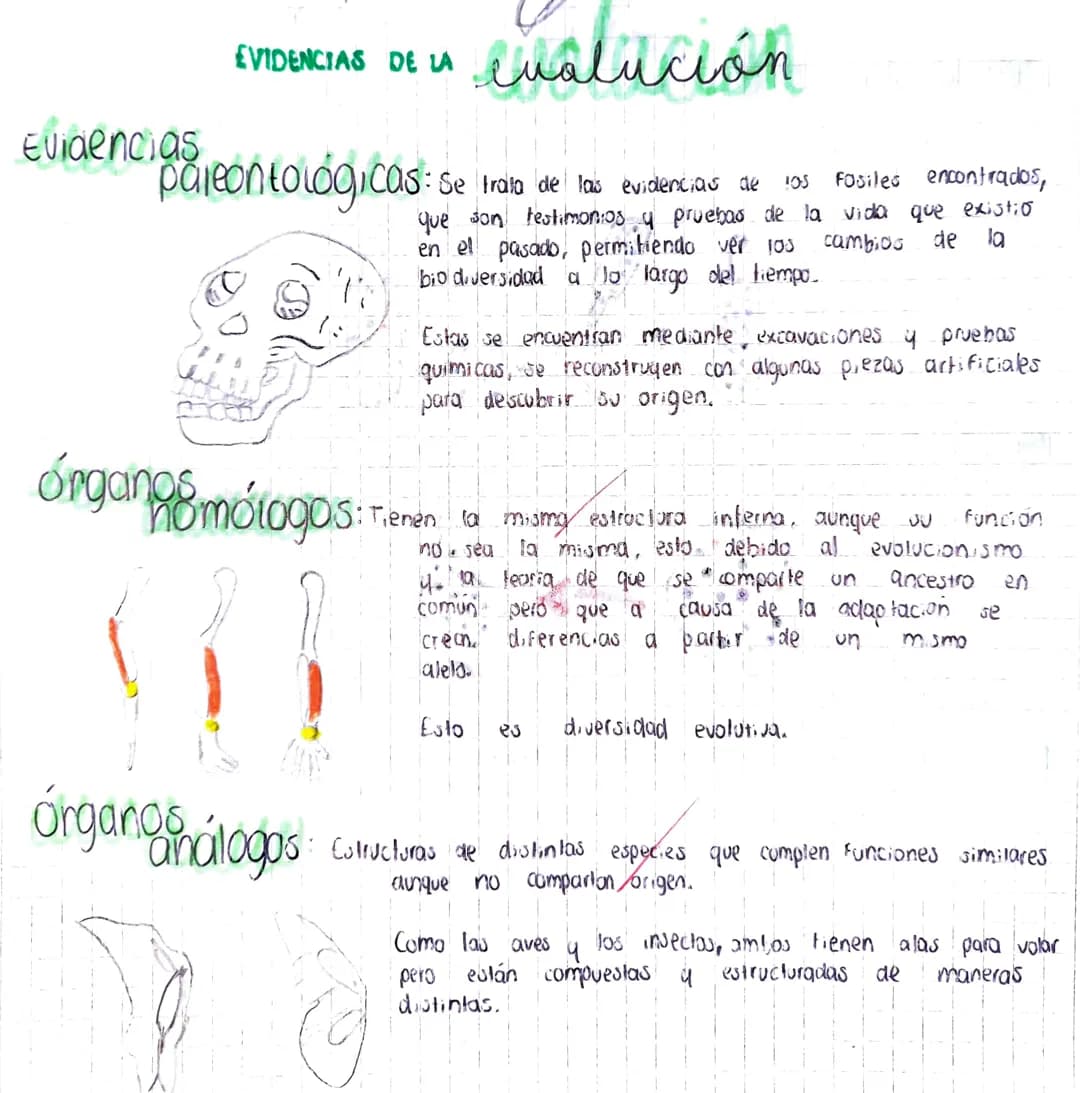 EVIDENCIAS DE LA evolución
Evidencias
paleontológicas: Se trata de las evidencias de los fosiles encontrados,
que son testimonios y pruebas de la vida que existió
en el pasado, permitiendo ver los cambios de la
biodiversidad a lo largo del tiempo.
Estas se encuentran mediante excavaciones y pruebas
químicas, se reconstruyen con algunas piezas artificiales
para descubrir su origen.
Órganos
homólogos: Tienen la misma estructura interna, aunque su función
no sea la misma, esto debido al evolucionismo
y la teoria de que se comparte un ancestro en
común pero que a causa de la adaptacion se
crean diferencias a partir de un mismo
alelo.
Esto es diversidad evolutiva.
Órganos
análogos: Estructuras de distintas especies que complen funciones similares
aunque no compartan origen.
Como las aves y los insectos, ambos tienen alas para volar
pero están compuestas y estructuradas de maneras
distintas.